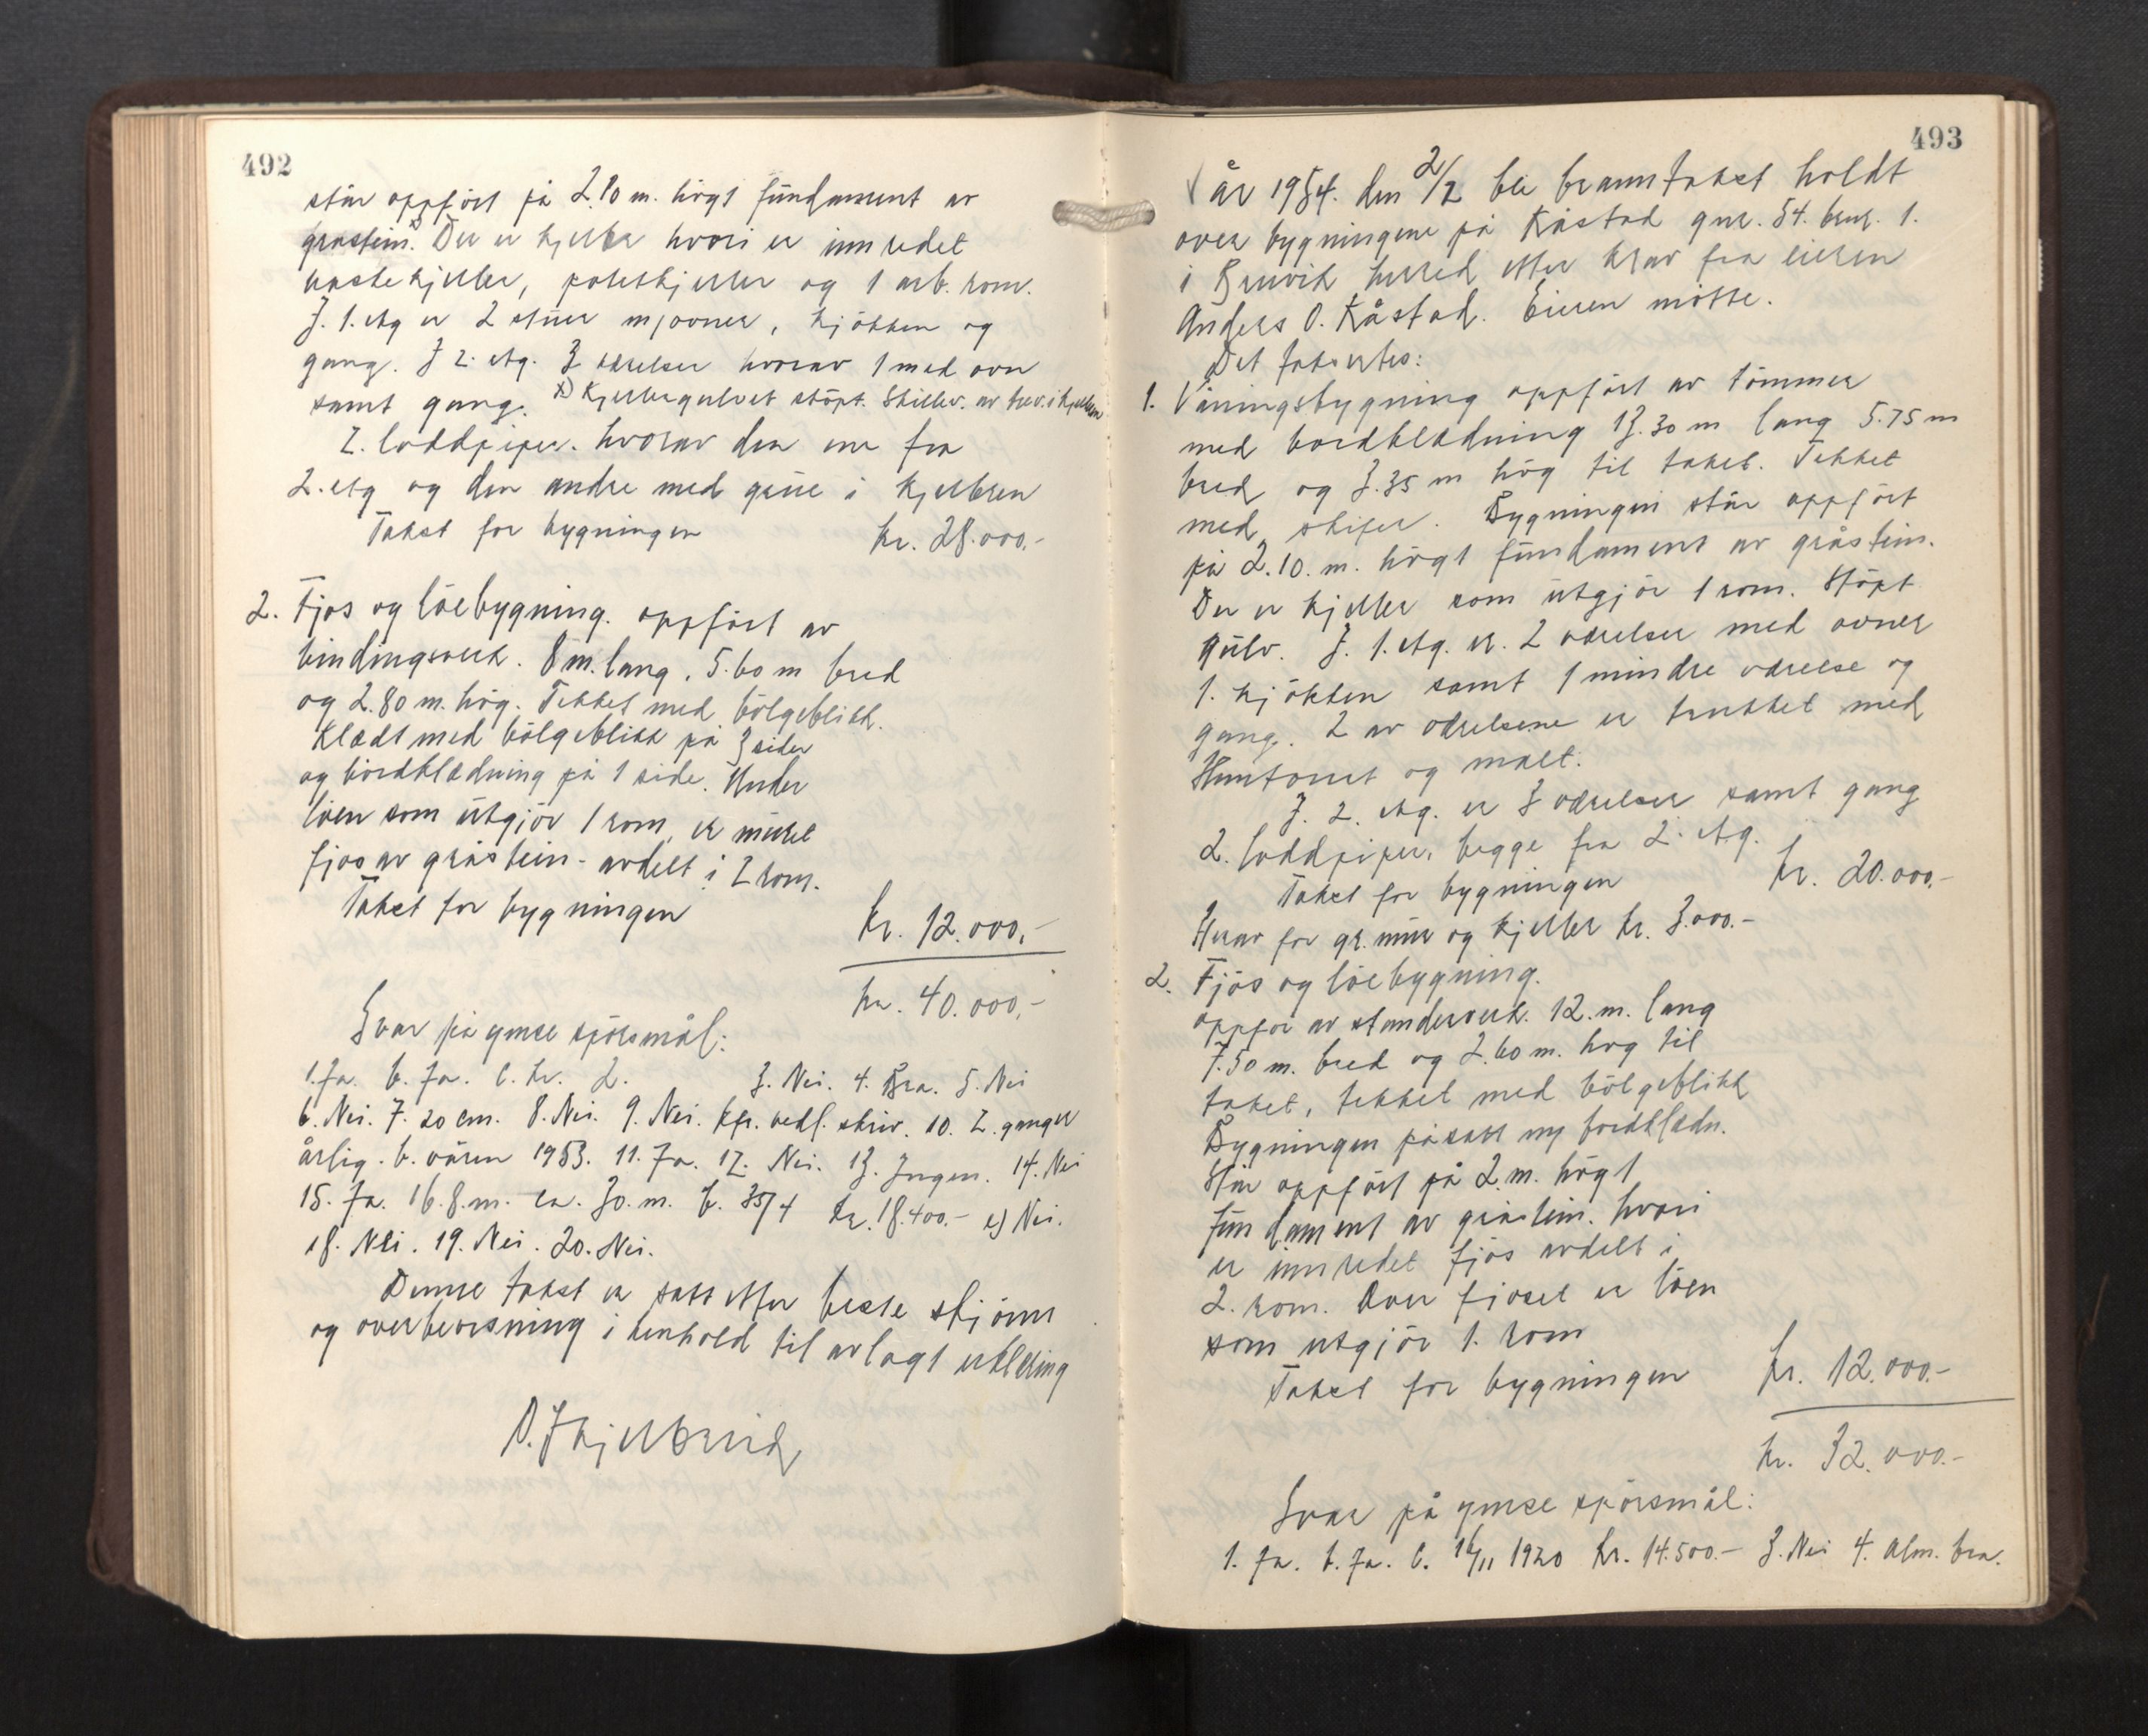 492
står oppført på 2.10 m. högt fundament av
gråstein. x) Der er kjeller hvori er innredet
vaskekjeller, potetkjeller og 1 arb. rom.
I. 1. etg er 2 stuer m/ovner, kjökken og
gang. I 2. etg. 3 værelser hvorav 1 med ovn
samt gang. x) Kjellergulvet stöpt. Skillev. av trev. i kjelleren
2. loddpiper. hvorav den ene fra
2. etg og den andre med grue i kjelleren
Takst for bygningen kr. 28.000.-
2. Fjos og löebygning. oppfört av
bindingsverk. 8 m. lang, 5.60 m bred
og 2.80 m. hög. Tekket med bölgeblikk.
Klædt med bölgeblikk på 3 sider
og bordklædning på 1 side. Under
löen som utgjör 1 rom, er muret
fjos av gråstein - avdelt i 2 rom.
Takst for bygningen
kr. 12.000.-
kr. 40.000.-
Svar på ymse spörsmål:
1. Ja. b. Ja. C. kr. 2. 3. Nei. 4. Bra. 5. Nei
6. Nei. 7. 20 cm. 8. Nei. 9. Nei. kfr. vedl. skriv. 10. 2. ganger
årlig. b. våren 1953. 11. Ja. 12. Nei. 13. Ingen. 14. Nei
15. Ja. 16. 8. m. ca. 30. m. b. 35/4 kr. 18.400.- c) Nei.
18. Nei. 19. Nei. 20. Nei.
Denne takst er satt etter beste skjönn
og overbevisning i henhold til avlagt erklæring
493
År 1954. den 2/2 ble branntakst holdt
over bygningene på Råstad gnr. 54. brnr. 1.
i Bruvik herred etter krav fra eieren
Anders O. Råstad. Eieren mötte.
Det taksertes:
1. Våningsbygning oppfört av tömmer
med bordklædning 13.30 m lang 5.75 m
bred og 3.35 m hög til taket. Tekket
med skifer. Bygningen står oppfört
på 2.10. m. högt fundament av gråstein.
Der er kjeller som utgjör 1 rom. Stöpt
gulv. I. 1. etg. er. 2 værelser med ovner
1. kjökken samt 1 mindre værelse og
gang. 2 av værelsene er trukket med
Huntonit og malt.
I. 2. etg. er 3 værelser samt gang
2. loddpiper, begge fra 2. etg.
Takst for bygningen kr. 20.000.-
Herav for gr. mur og kjeller kr. 3.000.-
2. Fjös og löebygning.
oppfør av standerverk. 12. m. lang
7.50 m. bred og 2.60 m. høg til
taket, tekket med bölgeblikk
Bygningen påsatt ny bordklædn.
Står oppfört på 2. m. högt
fundament av gråstein. hvori
er innredet fjös avdelt i
2. rom. Over fjöset er löen
som utgjör 1. rom
Takst for bygningen kr. 12.000.-
kr. 32.000.-
Svar på ymse spörsmål:
1. Ja. b. Ja. C. 16/11 1920 kr. 14.500.- 3. Nei 4. Alm. bra.